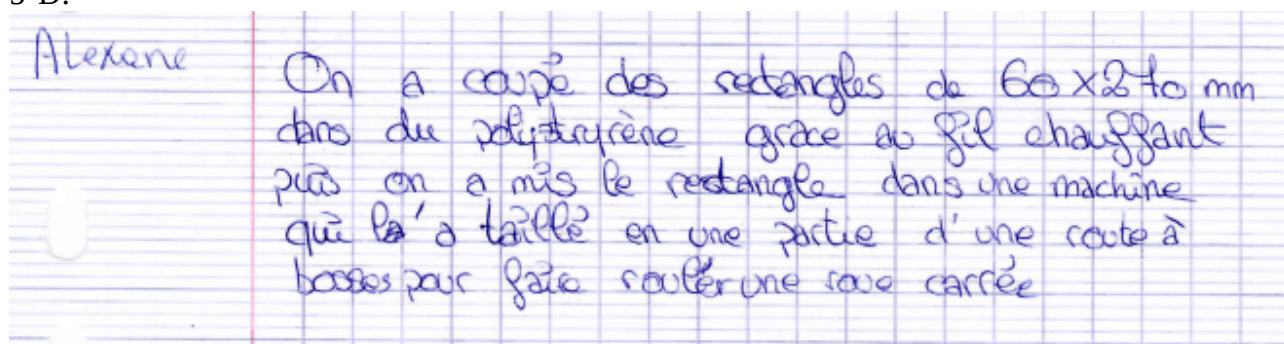 Alexane
On a coupé des rectangles de 60 x 270 mm
dans du polystyrène grace au fil chauffant
puis on a mis le rectangle dans une machine
qui la' a taillé en une partie d'une route à
bosses pour faire rouler une roue carrée